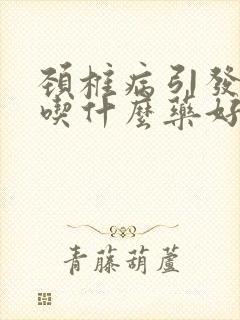 頚椎病引發
喫什麼藥好
青藤葫蘆